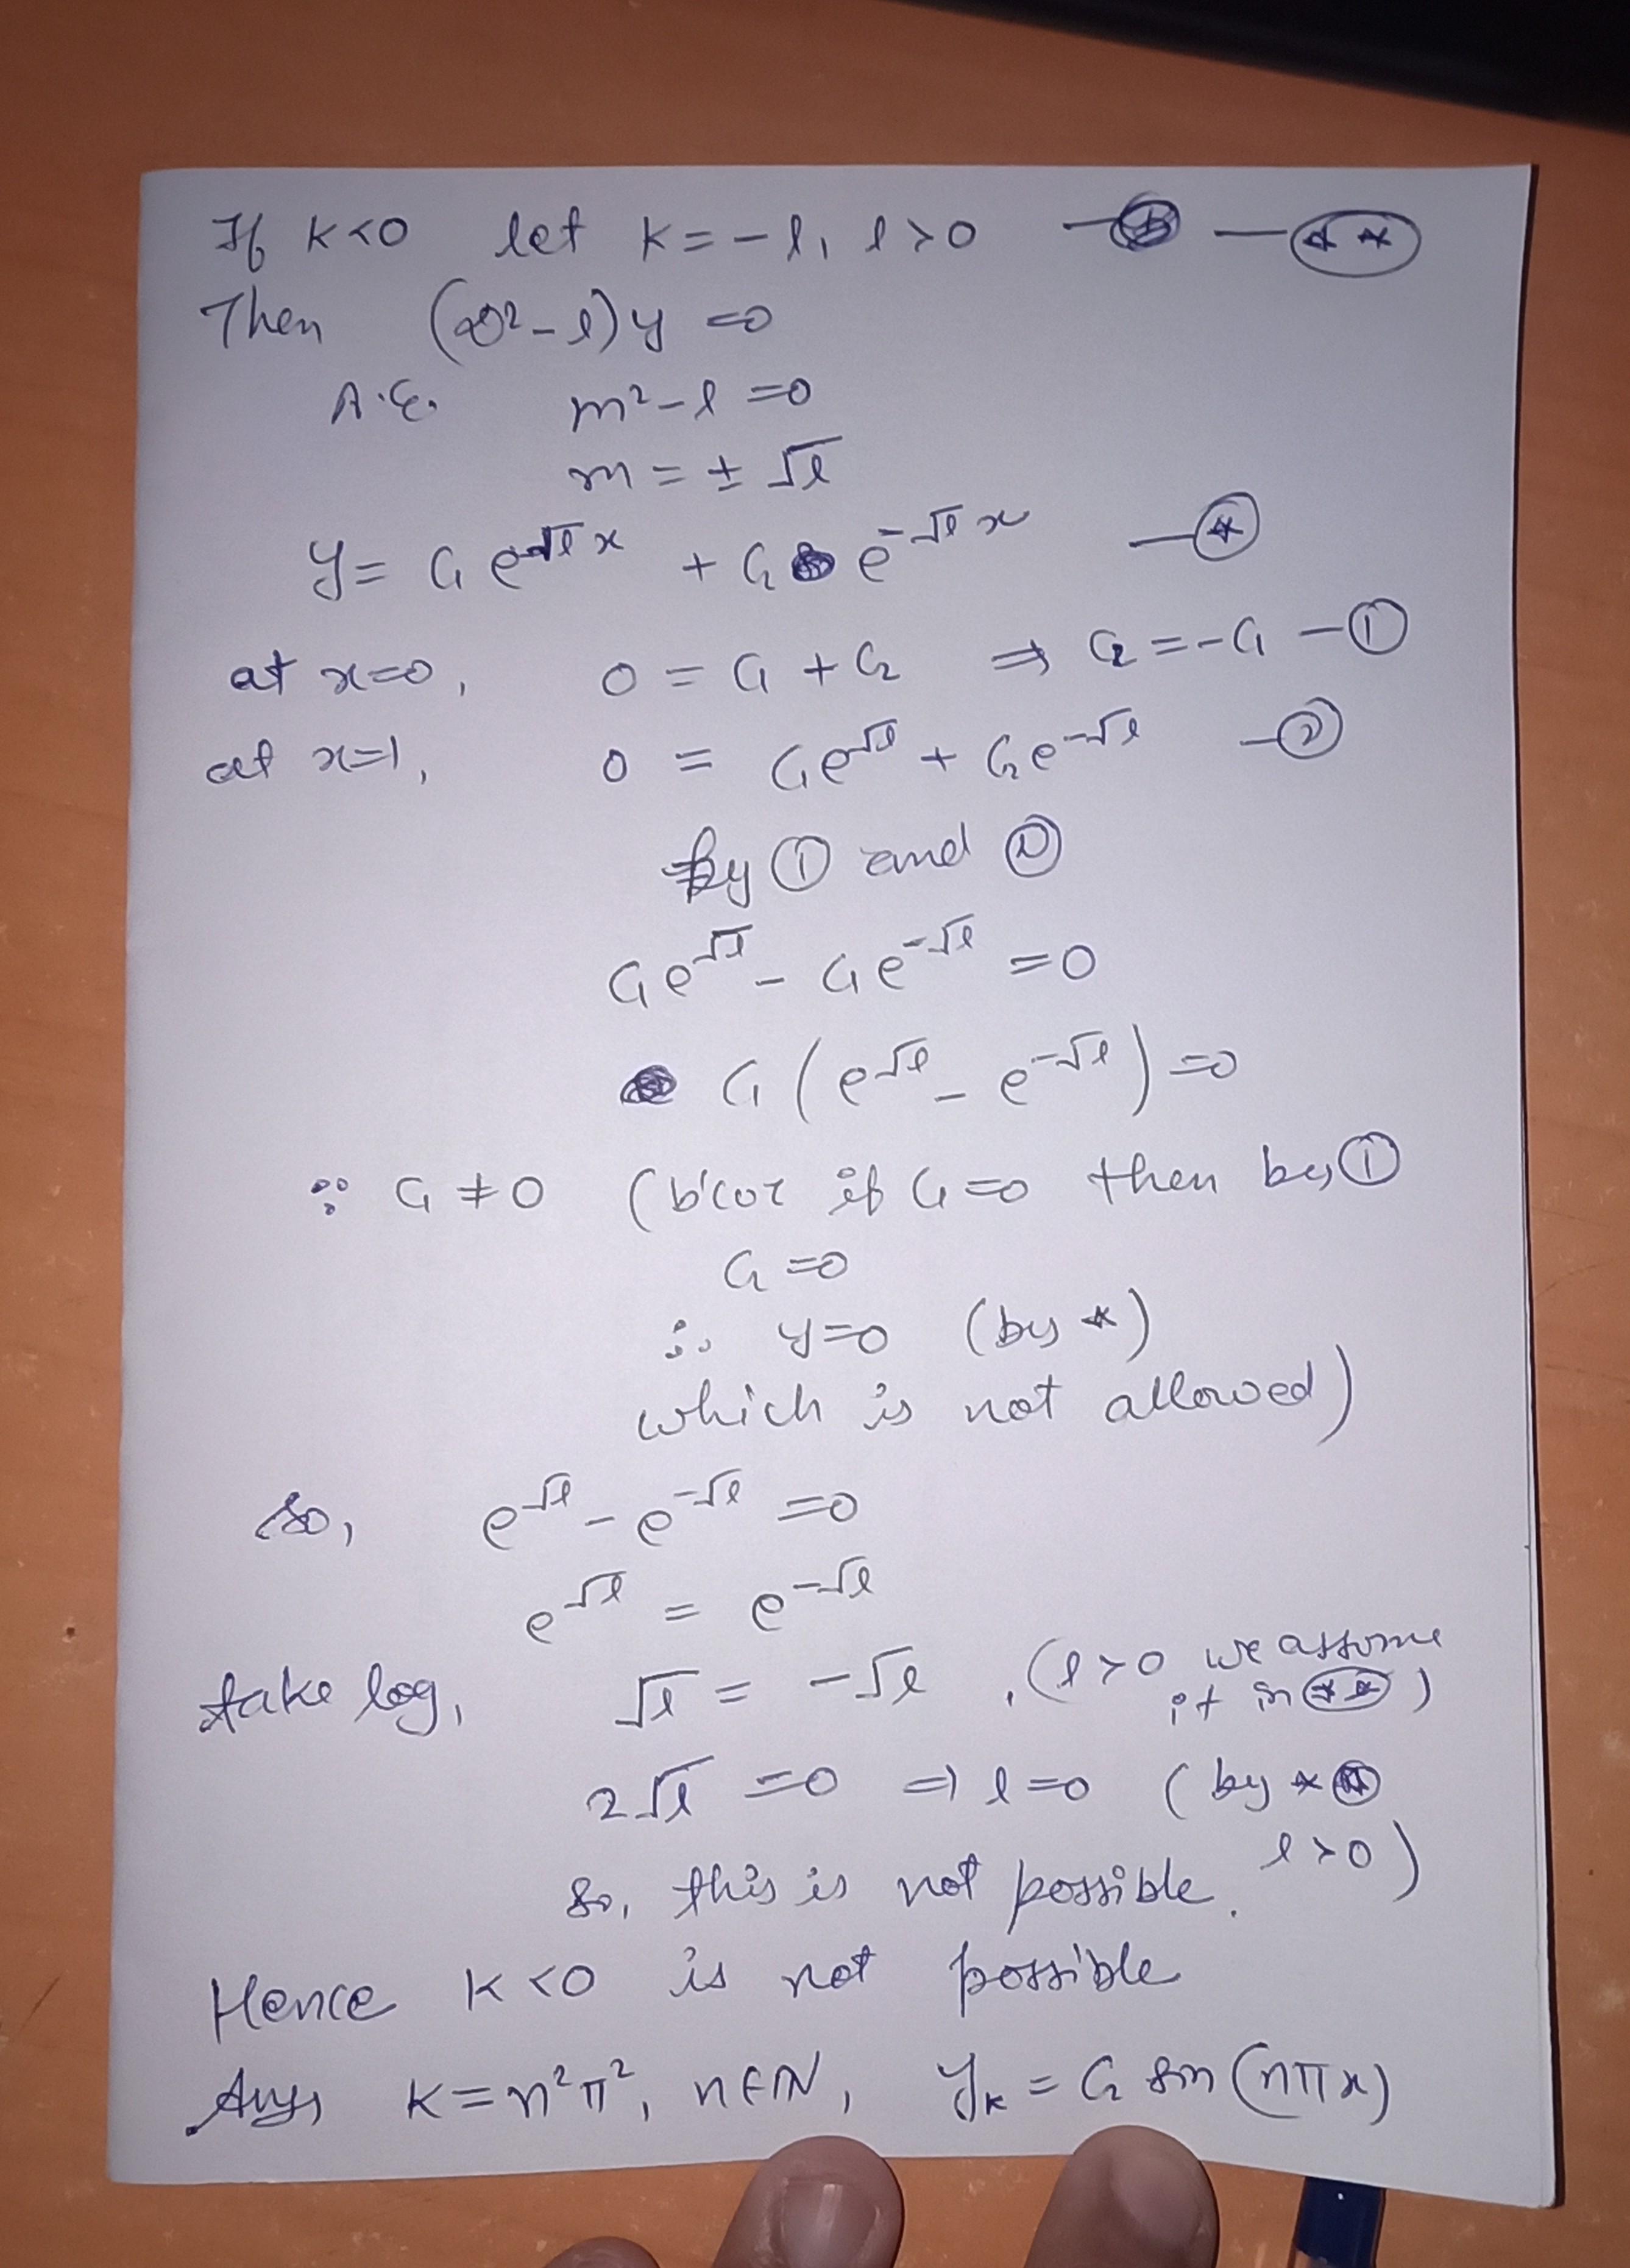 If k<0 let k=-l, l>0 — (**)
Then (D²-l)y=0
A.E. m²-l=0
m = ± √l
y = C₁ e^{√l x} + C₂ e^{-√l x} — (*)
at x=0, 0 = C₁ + C₂ ⇒ C₂ = -C₁ — ①
at x=1, 0 = C₁e^{√l} + C₂e^{-√l} — ②
by ① and ②
C₁e^{√l} - C₁e^{-√l} = 0
C₁(e^{√l} - e^{-√l}) = 0
∵ C₁ ≠ 0 (b'coz if C₁=0 then by ①
C₂=0
∴ y=0 (by *)
which is not allowed)
So, e^{√l} - e^{-√l} = 0
e^{√l} = e^{-√l}
take log, √l = -√l , (l>0 we assume
it in (**))
2√l = 0 ⇒ l=0 (by **
l>0)
So, this is not possible.
Hence k<0 is not possible
Ans, k=n²π², n∈N, yₖ = C₂ sin(nπx)